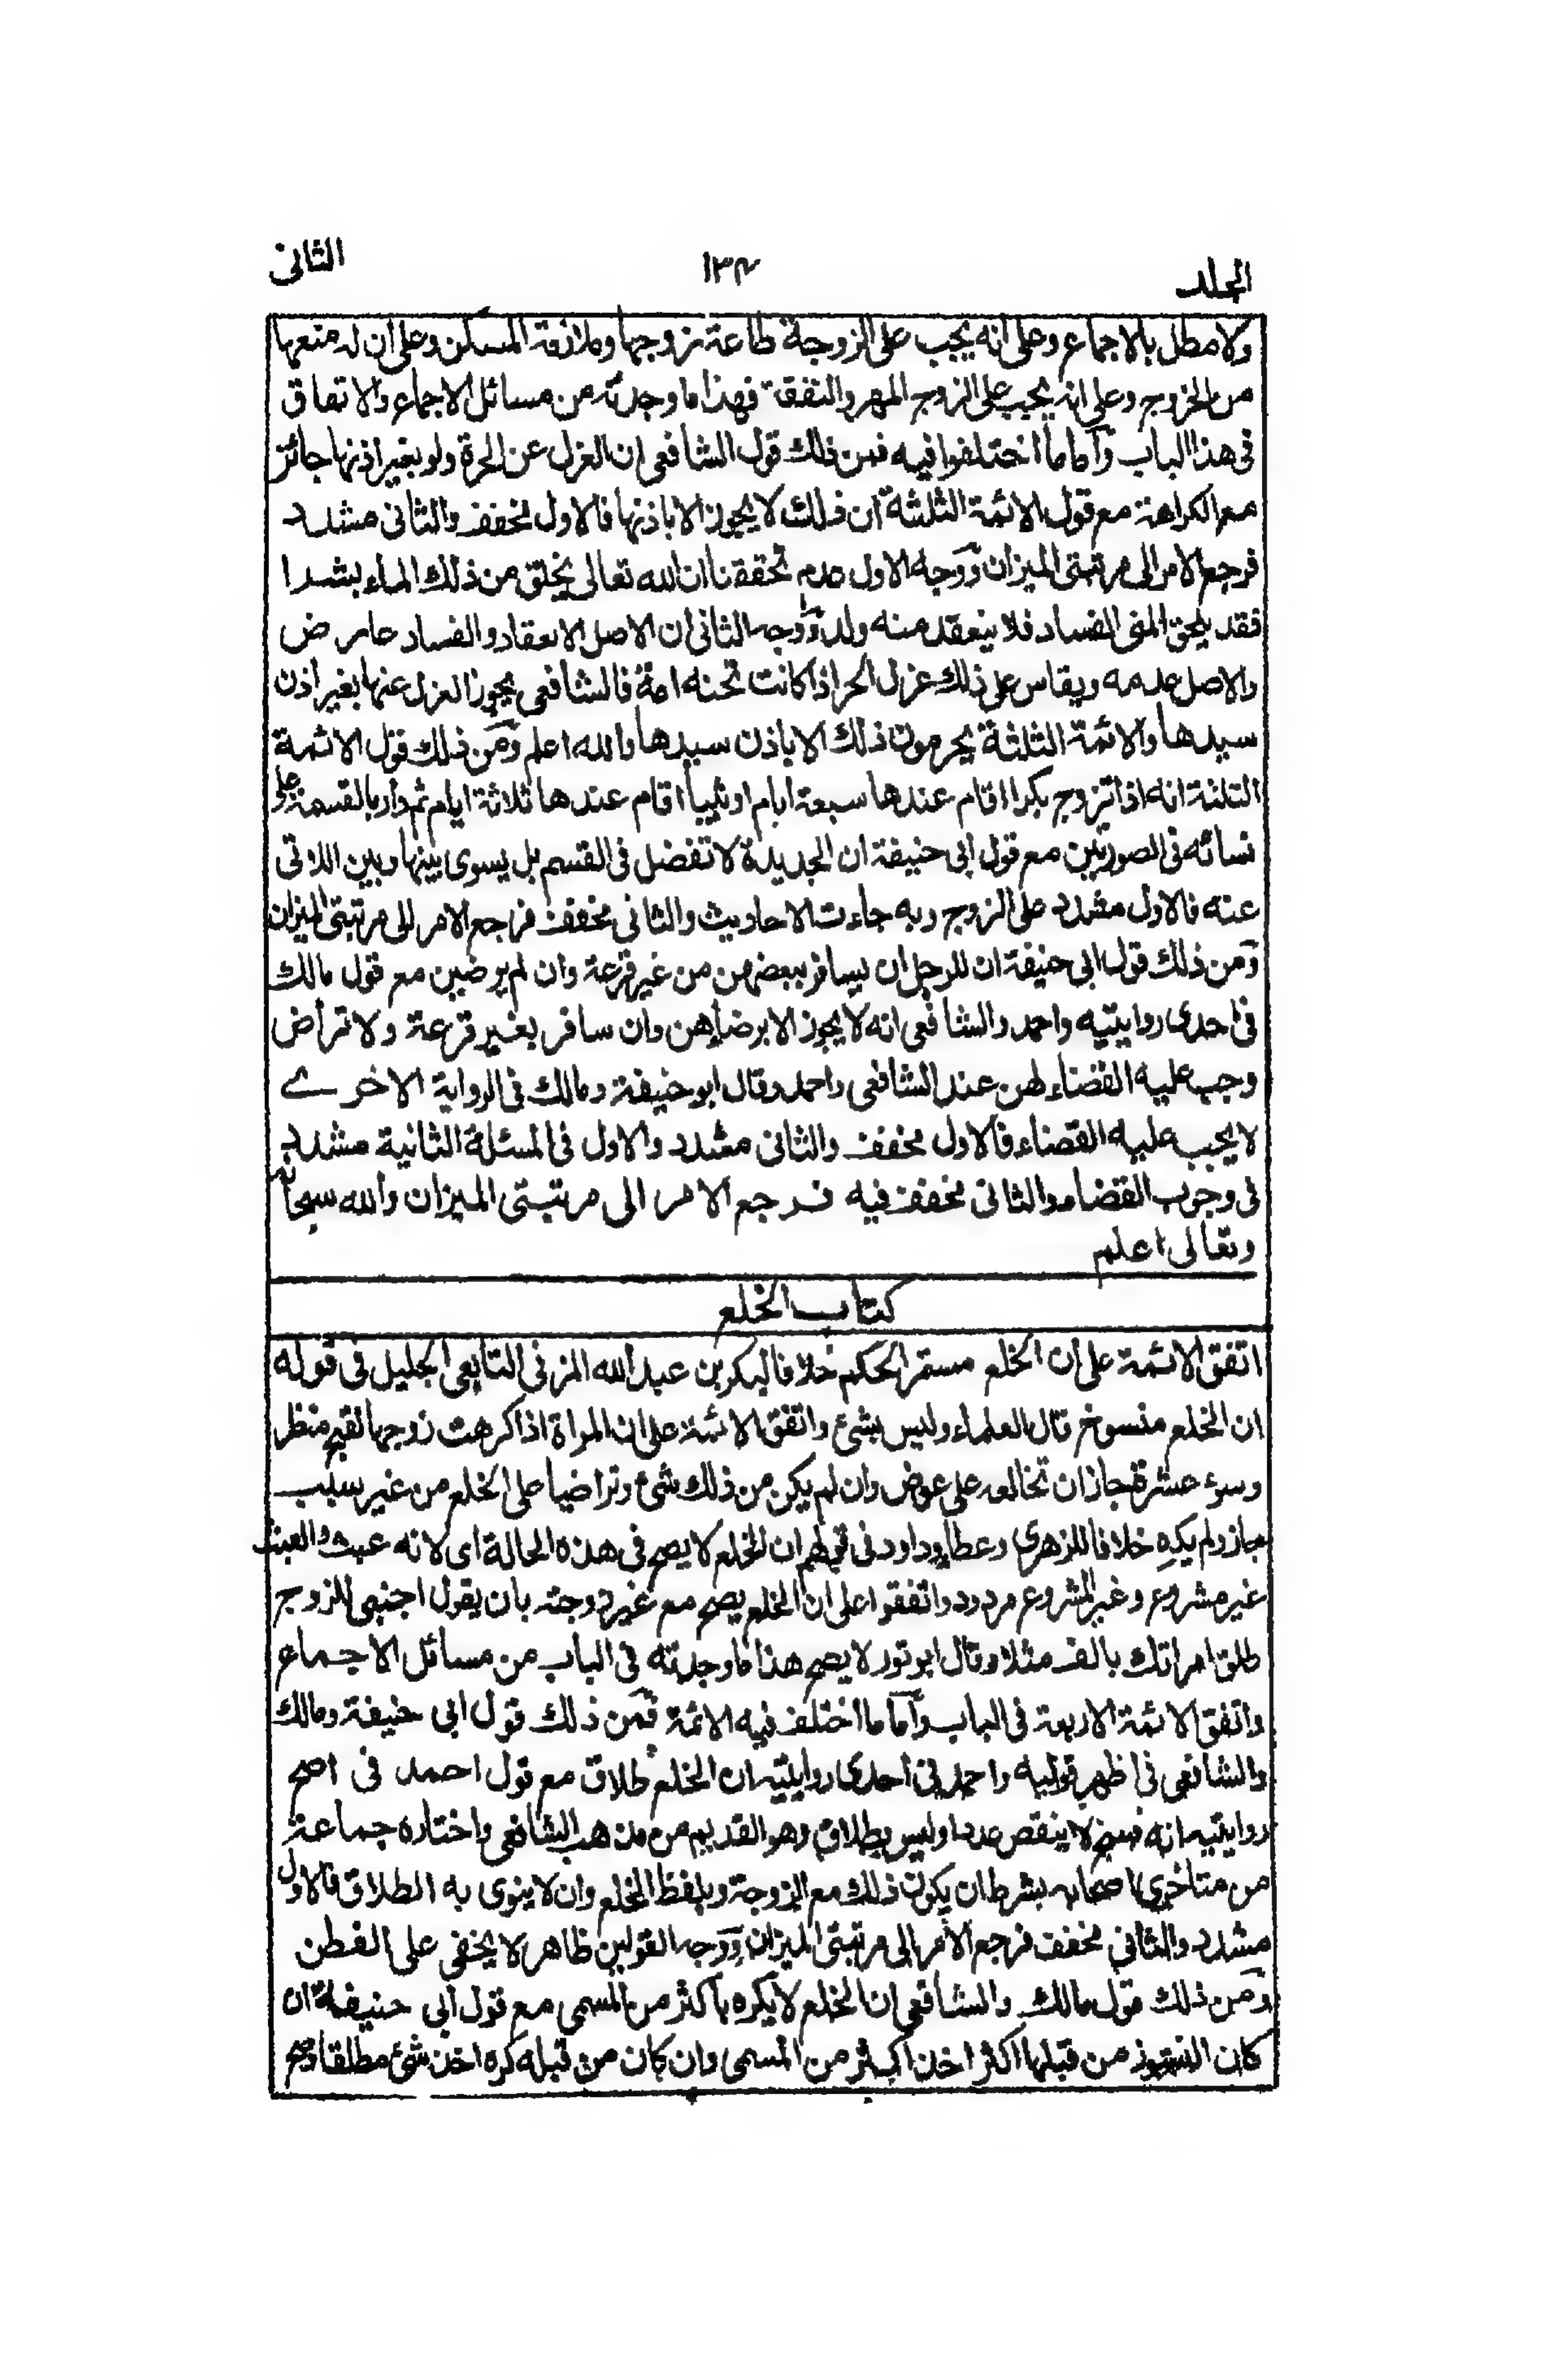 المجلد ١٣٤ الثانى
ولا مطل بالاجماع وعلى انه يجب على الزوجة طاعة زوجها وملازمة المسكن وعلى ان له منعها
من الخروج وعلى انه يجب على الزوج المهر والنفقة فهذا ما وجدته من مسائل الاجماع والاتفاق
فى هذا الباب وأما ما اختلفوا فيه فمن ذلك قول الشافعى ان العزل عن الحرة ولو بغير اذنها جائز
مع الكراهة مع قول الائمة الثلثة ان ذلك لا يجوز الا باذنها فالاول مخفف والثانى مشدد
فرجع الامر الى مرتبتى الميزان ووجه الاول عدم تحققنا ان الله تعالى يخلق من ذلك الماء بشرا
فقد يلحق المنى الفساد فلا ينعقد منه ولد ووجه الثانى ان الاصل الانعقاد والفساد عارض
والاصل عدمه ويقاس على ذلك عزل الحر اذا كانت تحته امة فالشافعى يجوز العزل عنها بغير اذن
سيدها والائمة الثلثة يحرمون ذلك الا باذن سيدها والله اعلم ومن ذلك قول الائمة
الثلثة انه اذا تزوج بكرا اقام عندها سبعة ايام او ثيبا اقام عندها ثلاثة ايام ثم دار بالقسمة على
نسائه فى الصورتين مع قول ابى حنيفة ان الجديدة لا تفضل فى القسم بل يسوى بينها وبين اللاتى
عنده فالاول مشدد على الزوج وبه جاءت الاحاديث والثانى مخفف فرجع الامر الى مرتبتى الميزان
ومن ذلك قول ابى حنيفة ان للرجل ان يسافر ببعضهن من غير قرعة وان لم يرضين مع قول مالك
فى احدى روايتيه واحمد والشافعى انه لا يجوز الا برضاهن وان سافر بغير قرعة ولا تراض
وجب عليه القضاء لهن عند الشافعى واحمد وقال ابو حنيفة ومالك فى الرواية الاخرے
لا يجب عليه القضاء فالاول مخفف والثانى مشدد والاول فى المسئلة الثانية مشدد
فى وجوب القضاء والثانى مخفف فيه فرجع الامر الى مرتبتى الميزان والله سبحانه
وتعالى اعلم
كتاب الخلع
اتفق الائمة على ان الخلع مستمر الحكم خلافا لبكر بن عبد الله المزنى التابعى الجليل فى قوله
ان الخلع منسوخ قال العلماء وليس بشئ واتفق الائمة على ان المراة اذا كرهت زوجها لقبح منظر
وسوء عشرة جاز ان تخالعه على عوض وان لم يكن من ذلك شئ وتراضيا على الخلع من غير سبب
جاز ولم يكره خلافا للزهرى وعطاء وداود فى قولهم ان الخلع لا يصح فى هذه الحالة اى لانه عبث والعبث
غير مشروع وغير المشروع مردود واتفقوا على ان الخلع يصح مع غير زوجته بان يقول اجنبى للزوج
طلق امراتك بالف مثلا وقال ابو ثور لا يصح هذا ما وجدته فى الباب من مسائل الاجماع
واتفق الائمة الاربعة فى الباب وأما ما اختلف فيه الائمة فمن ذلك قول ابى حنيفة ومالك
والشافعى فى اظهر قوليه واحمد فى احدى روايتيه ان الخلع طلاق مع قول احمد فى اصح
روايتيه انه فسخ لا ينقص عددا وليس بطلاق وهو القديم من مذهب الشافعى واختاره جماعة
من متأخرى اصحابه بشرط ان يكون ذلك مع الزوجة وبلفظ الخلع وان لا ينوى به الطلاق فالاول
مشدد والثانى مخفف فرجع الامر الى مرتبتى الميزان ووجه القولين ظاهر لا يخفى على الفطن
ومن ذلك قول مالك والشافعى ان الخلع لا يكره بأكثر من المسمى مع قول ابى حنيفة ان
كان النشوز من قبلها اكثر اخذ اكثر من المسمى وان كان من قبله كره اخذ شئ مطلقا وصح